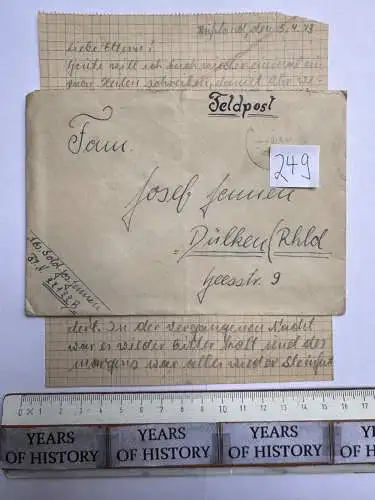 Rußland, den 5.4.43
Liebe Eltern!
Heute will ich Euch wieder einmal ein
paar Zeilen schreiben, damit Ihr
Feldpost
249
Fam.
Josef Jennen
Dülken/Rhld
Geesstr. 9
Abs. Sold. Jos. Jennen
dert. In der vergangenen Nacht
war es wieder bitter kalt und des
morgens war alles wieder
0 1 2 3 4 5 6 7 8 9 10 11 12 13 14 15 16 17
YEARS
OF HISTORY
YEARS
OF HISTORY
YEARS
OF HISTORY
YEA
OF HIS